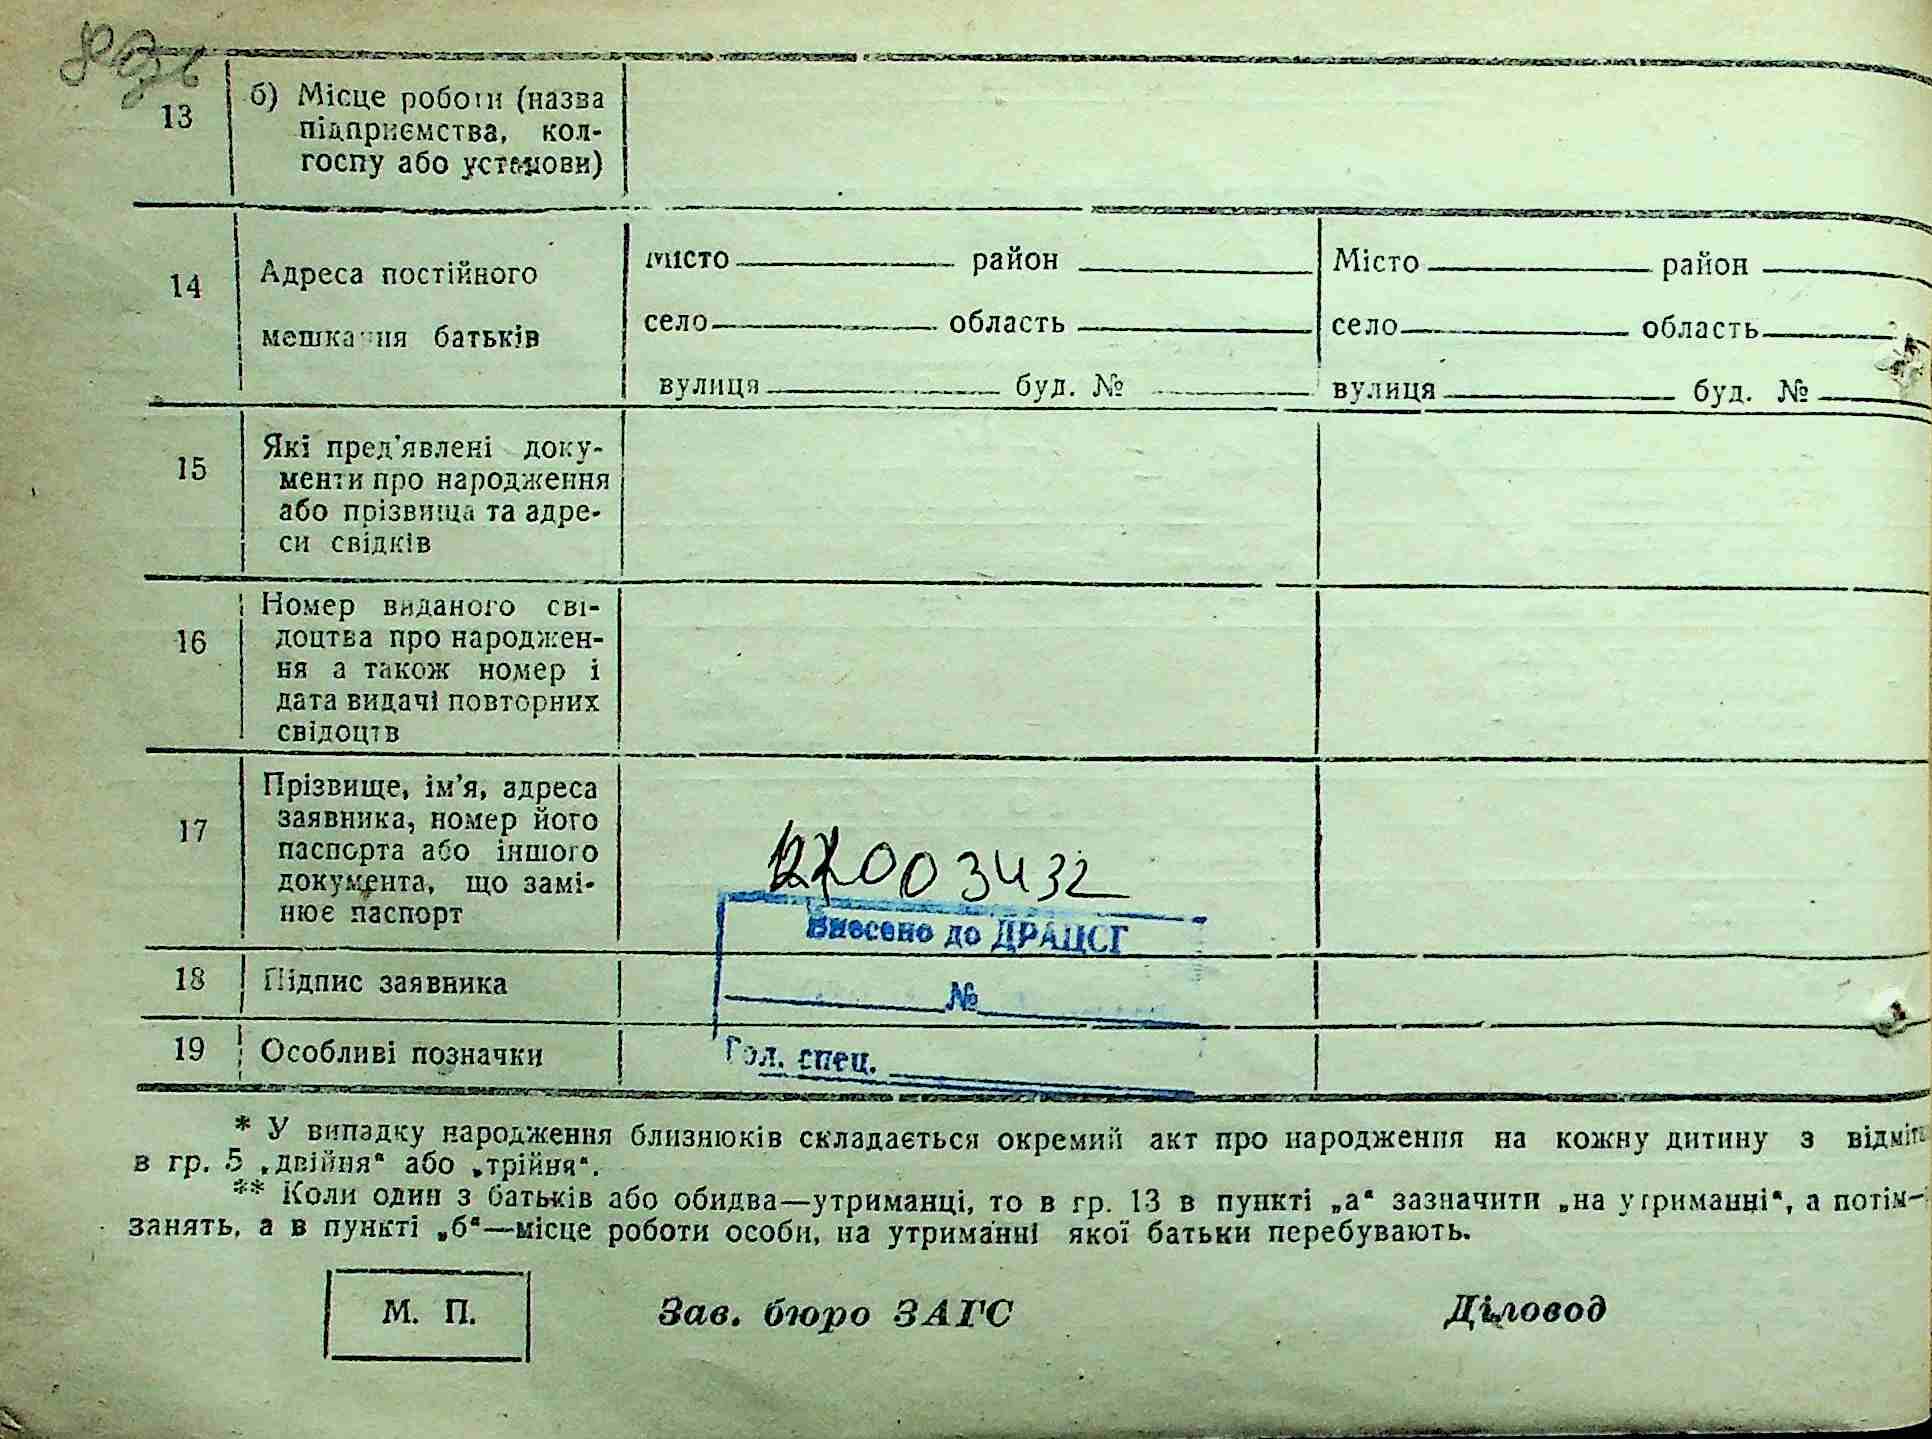 13
б) Місце роботи (назва
підприємства, кол-
госпу або установи)
14
Адреса постійного
мешкання батьків
місто район
село область
вулиця буд. №
Місто район
село область
вулиця буд. №
15
Які пред'явлені доку-
менти про народження
або прізвища та адре-
си свідків
16
Номер виданого сві-
доцтва про народжен-
ня а також номер і
дата видачі повторних
свідоцтв
17
Прізвище, ім'я, адреса
заявника, номер його
паспорта або іншого
документа, що замі-
нює паспорт
003432
Внесено до ДРАЦСГ
№
Гол. спец.
18
Підпис заявника
19
Особливі позначки
* У випадку народження близнюків складається окремий акт про народження на кожну дитину з
в гр. 5 „двійня“ або „трійня“.
** Коли один з батьків або обидва—утриманці, то в гр. 13 в пункті „а“ зазначити „на утриманні“, а потім—
занять, а в пункті „б“—місце роботи особи, на утриманні якої батьки перебувають.
М. П.
Зав. бюро ЗАГС
Діловод